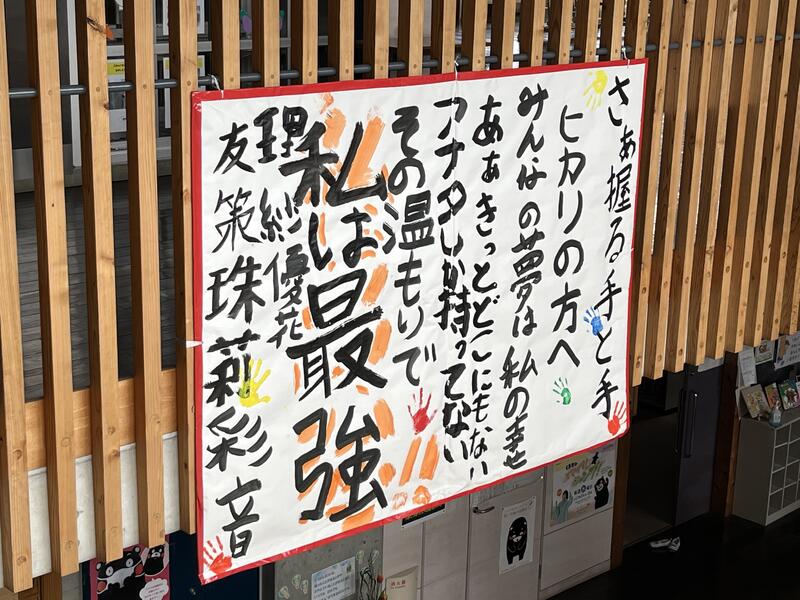 さぁ握る手と手
ヒカリの方へ
みんなの夢は私の幸せ
あぁきっとどこにもない
アナタしか持ってない
その温もりで
私は最強!!
理紗優花
友策珠莉彩音